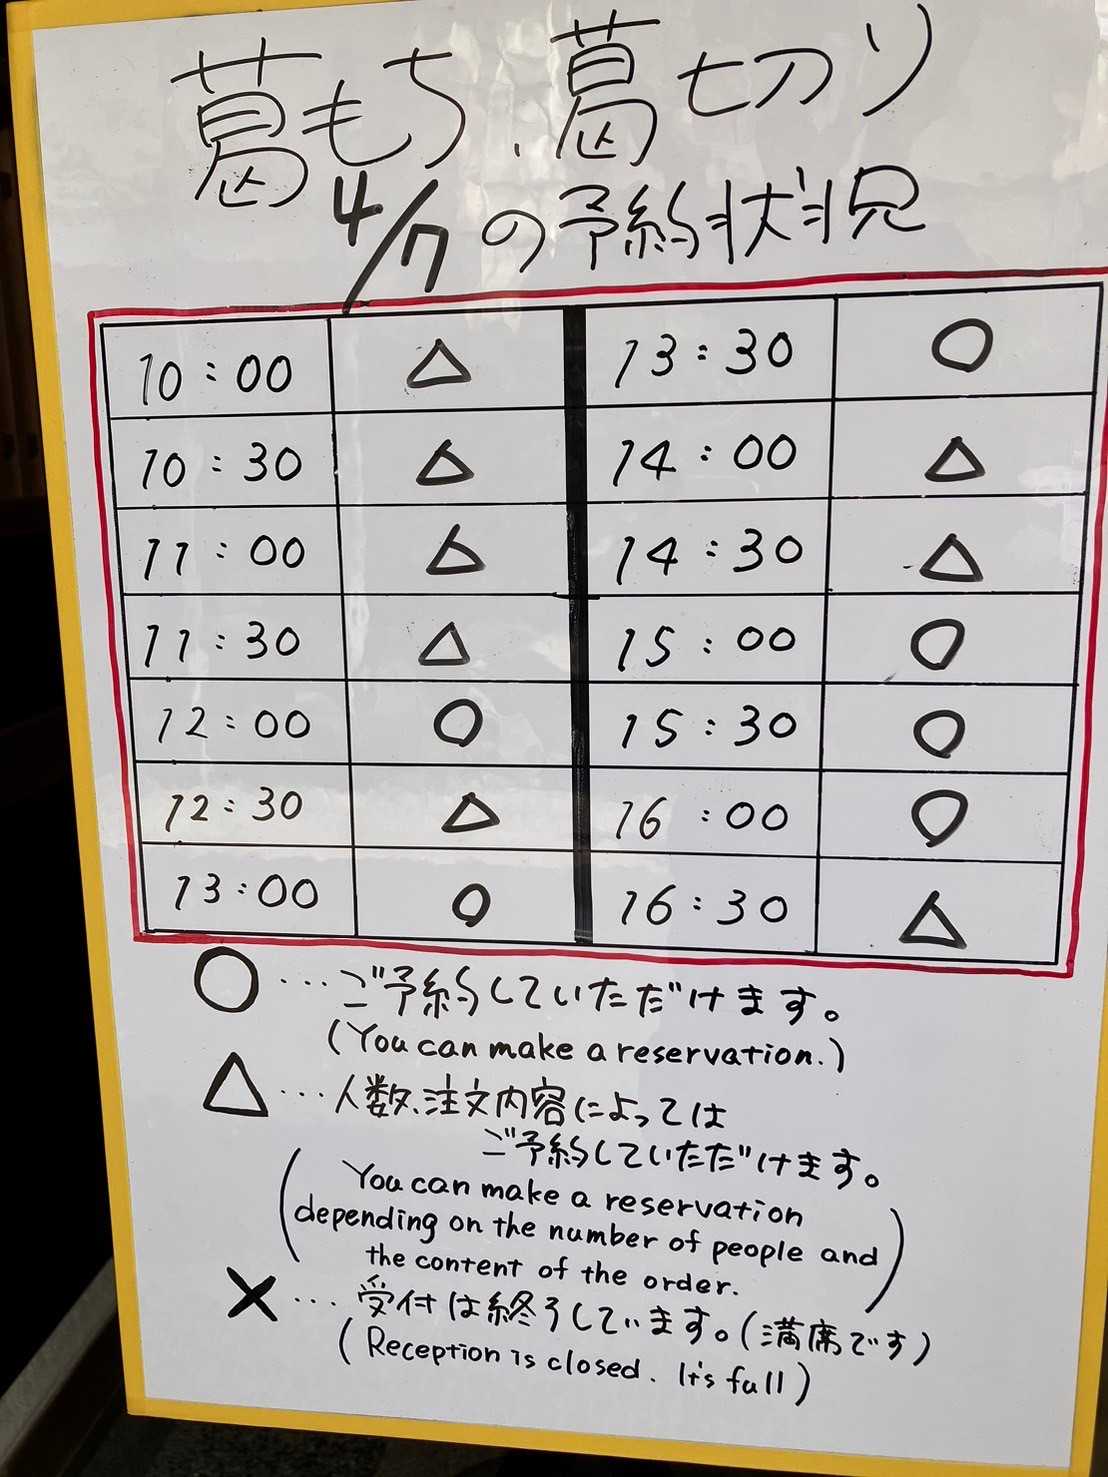 葛もち、葛切り
4/7の予約状況
10:00 △ 13:30 ○
10:30 △ 14:00 △
11:00 △ 14:30 △
11:30 △ 15:00 ○
12:00 ○ 15:30 ○
12:30 △ 16:00 ○
13:00 ○ 16:30 △
○…ご予約していただけます。
(You can make a reservation.)
△…人数、注文内容によっては
ご予約していただけます。
(You can make a reservation
depending on the number of people and
the content of the order.)
×…受付は終了しています。(満席です)
(Reception is closed. It's full)